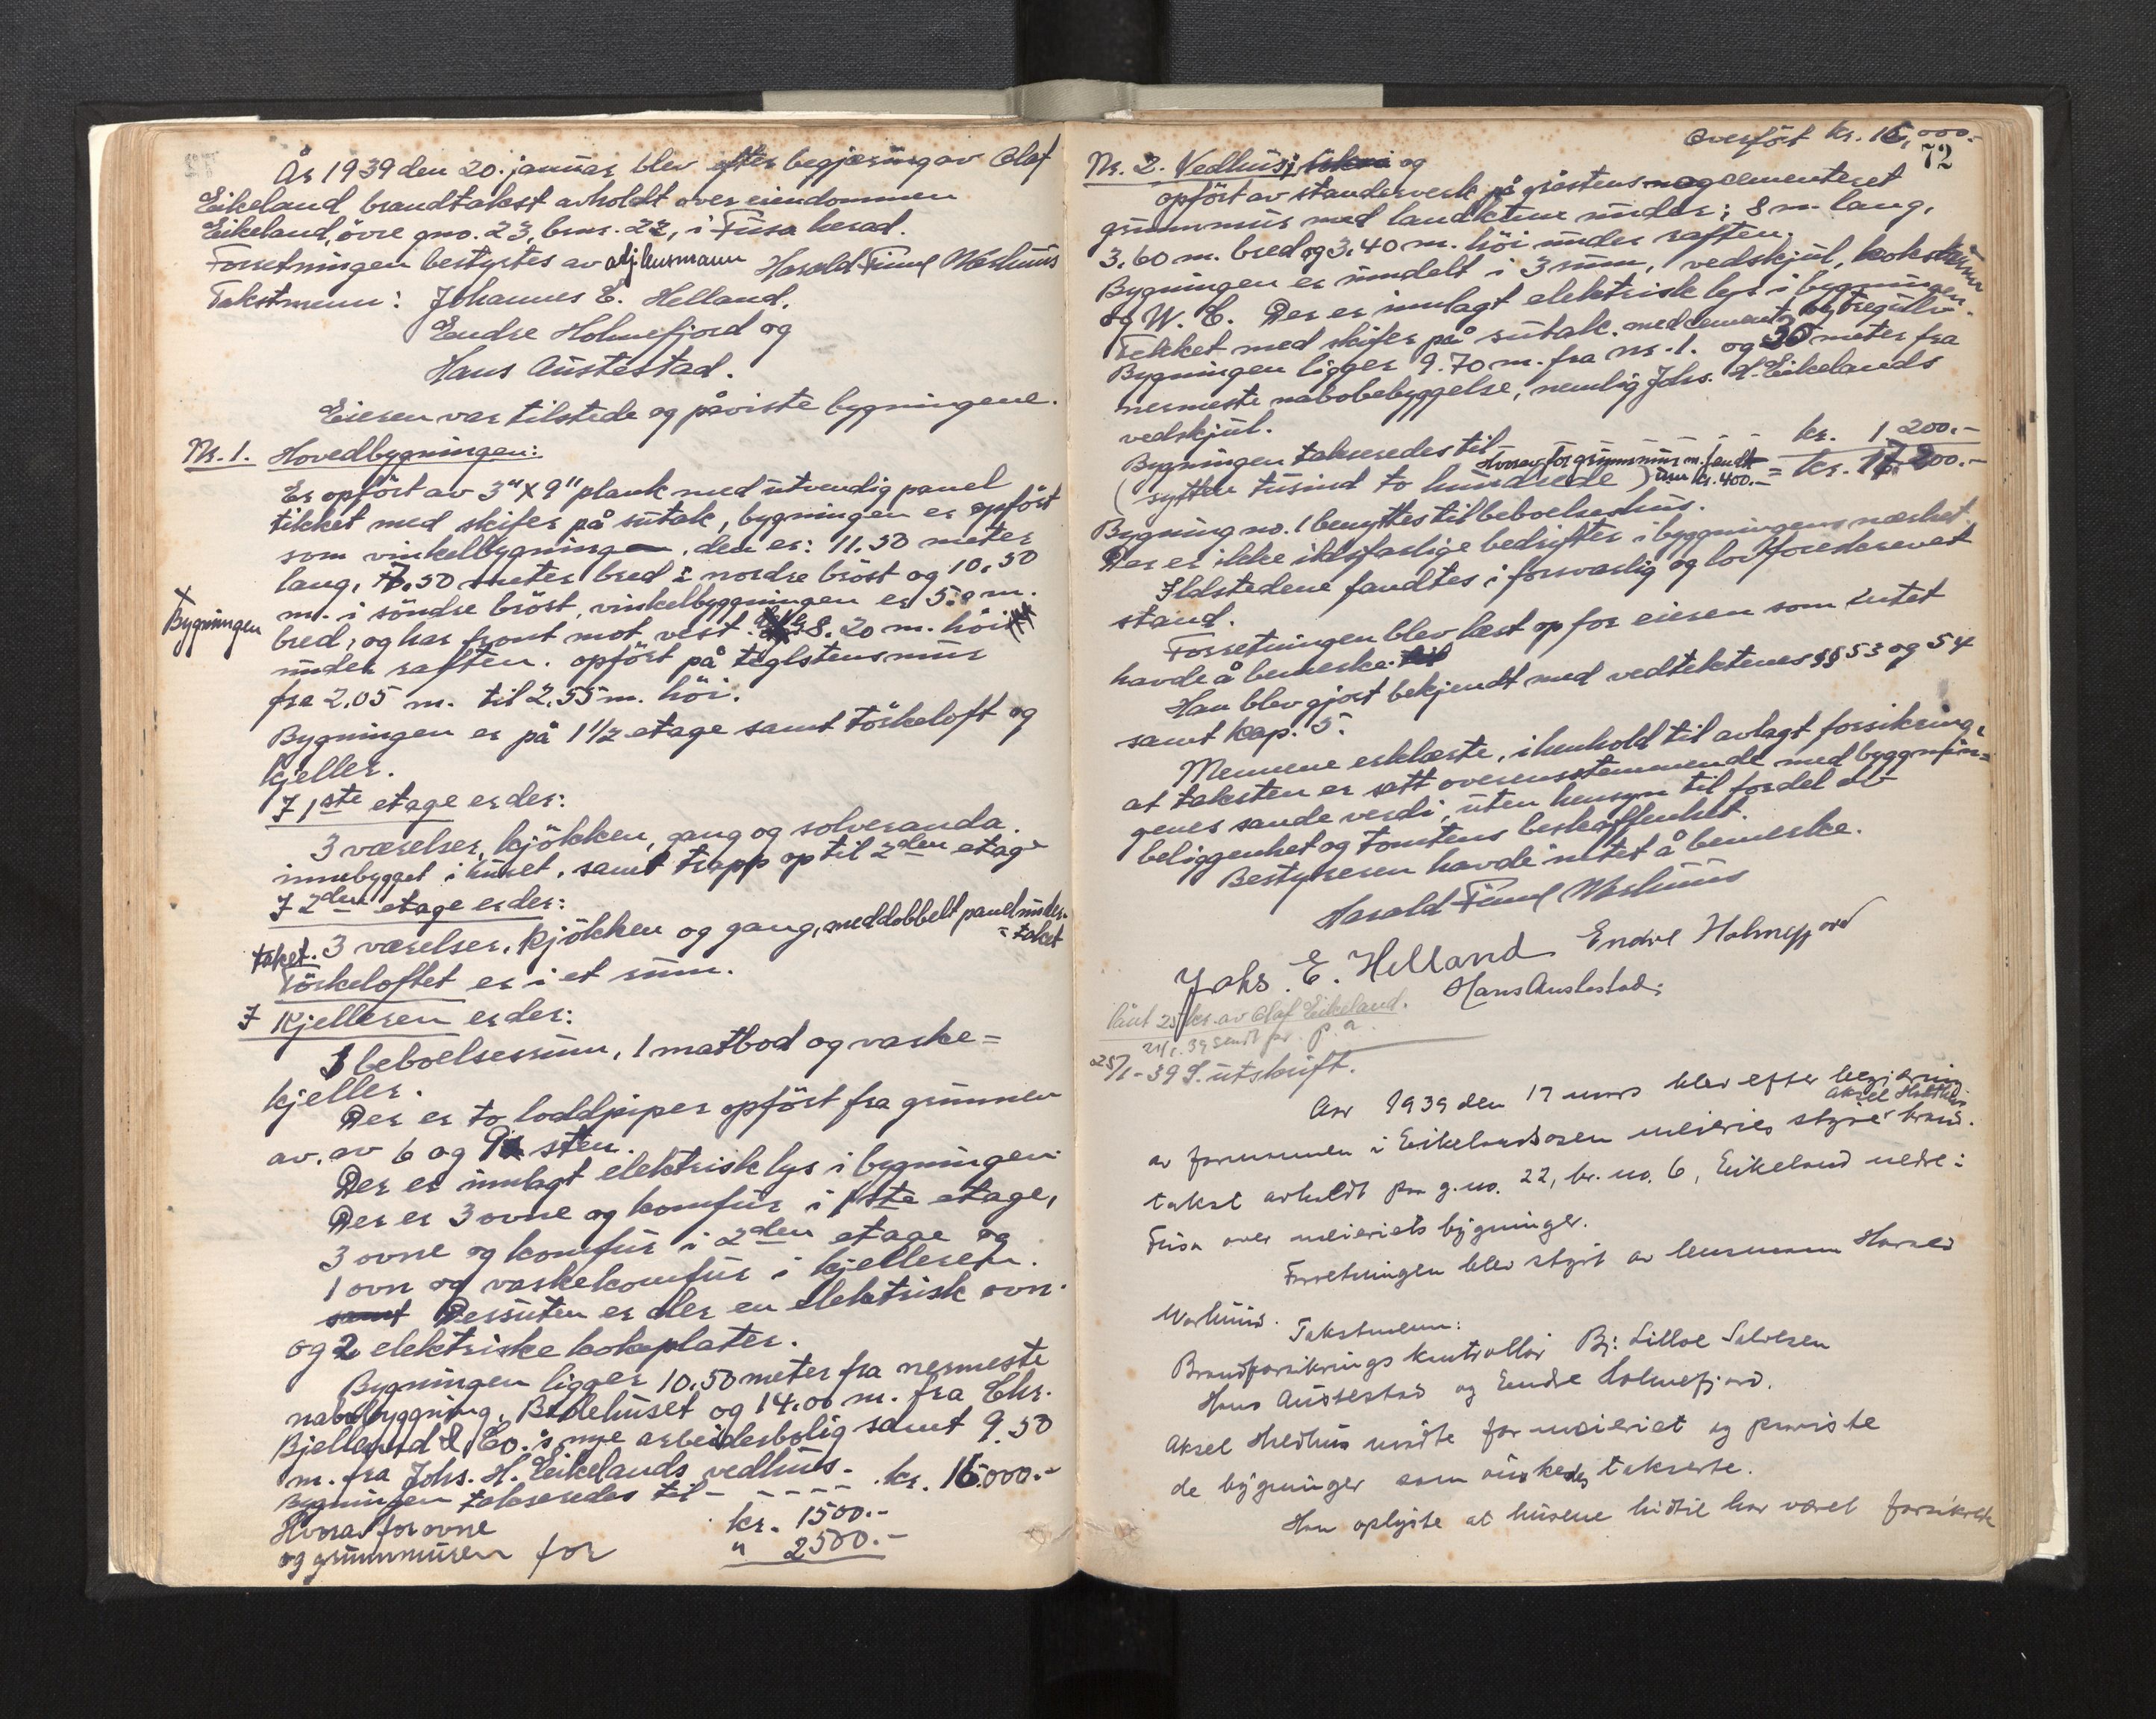 År 1939 den 20. januar blev efter begjæring av Olaf
Eikeland brandtakst avholdt over eiendommen
Eikeland, övre gno. 23, brnr. 22, i Fusa herad.
Forretningen bestyrtes av adj lensmann Harald
Takstmenn: Johannes E. Helland.
Endre Holmefjord og
Hans Austestad.
Eieren var tilstede og påviste bygningene.
Nr. 1. Hovedbygningen:
Er opfört av 3" x 9" plank med utvendig panel
tekket med skifer på sutak, bygningen er opfört
som vinkelbygning, den er: 11.50 meter
lang, 7,50 meter bred i nordre bröst og 10,50
m. i söndre bröst, vinkelbyggningen er m.
Bygningen
bred, og har front mot vest. 8.20 m. höi
under raften. opfört på teglstensmur
fra 2.05 m. til 2.55 m. höi.
Bygningen er på 1 1/2 etage samt törkeloft og
kjeller.
I 1ste etage er der:
3 værelser, kjökken, gang og solveranda.
innebygget i huset, samt trapp op til 2den etage
I 2den etage er der:
3 værelser, kjökken og gang, med dobbelt panel under
taket. = taket
Törkeloftet er i et rum.
I kjelleren er der:
beboelsesrum, 1 matbod og vaske=
kjeller.
Der er to loddpiper opfört fra grunnen
av, av 6 og 9 sten.
Der er innlagt elektrisk lys i bygningen.
Der er 3 ovne og komfur i 1ste etage,
3 ovne og komfur i 2den etage og
1 ovn og vaskekomfur i kjelleren.
samt Dessuten er der en elektrisk ovn.
og 2 elektriske kokeplater.
Bygningen ligger 10.50 meter fra nermeste
nabobyggning, Bedehuset og 14.00 m. fra Chr.
Bjelland & Co.'s nye arbeiderbolig samt 9.50
m. fra Johs. H. Eikelands vedhus.
Bygningen takseredes til - - - - - kr. 16.000.-
Hvorav for ovne kr. 1500.-
og grunnmuren for " 2500.-
Overfört kr. 16,000.-
72
Nr. 2. Vedhus, og
opfört av standerverk på gråstens cementeret
grunnmur med landkum under; 8 m. lang,
3.60 m. bred og 3,40 m. höi under raften.
Bygningen er inndelt i 3 rum, vedskjul,
og W. C. Der er innlagt elektrisk lys i bygningen.
Tekket med skifer på sutak. med cement og tregulv.
Bygningen ligger 9.70 m. fra nr. 1. og 30 meter fra
nermeste nabobebyggelse, nemlig Johs. H. Eikelands
vedskjul.
Bygningen takseredes til - - - - kr. 1 200.-
Hvorav for grunnmur m. kr. 400.-
(sytten tusind to hundrede) = kr. 17 200.-
Bygning no. 1 benyttes til beboelseshus.
Der er ikke ildsfarlige bedrifter i byggningens nærhet.
Ildstedene fandtes i forsvarlig og lovforeskrevet
stand.
Forretningen blev læst op for eieren som intet
havde å bemerke.
Han blev gjort bekjendt med vedtektenes §§ 53 og 54
samt kap. 5.
Mennene erklærte, i henhold til avlagt forsikring,
at taksten er satt overensstemmende med byggnin=
genes sande verdi, uten hensyn til fordel av
beliggenhet og tomtens beskaffenhet.
Bestyreren havde intet å bemerke.
Harald
Johs. E. Helland Endre Holmefjord
Hans Austestad.
lånt 25 kr. av Olaf Eikeland.
25/1-39 S. utskrift.
Aar 1939 den 17 mars blev efter begjæring
av formannen i Eikelandsosen meieries styre Aksel brand.
takst avholdt paa g.no. 22, br. no. 6, Eikeland nedre i
Fusa over meieriets bygninger.
Forretningen blev styrt av lensmann Harald
Takstmenn:
Brandforsikrings kontrollör Bj: Lilloe Salvesen
Hans Austestad og Endre Holmefjord.
Aksel mötte for meieriet og paaviste
de bygninger som önskedes takserte.
Han oplyste at husene hidtil har været forsikret